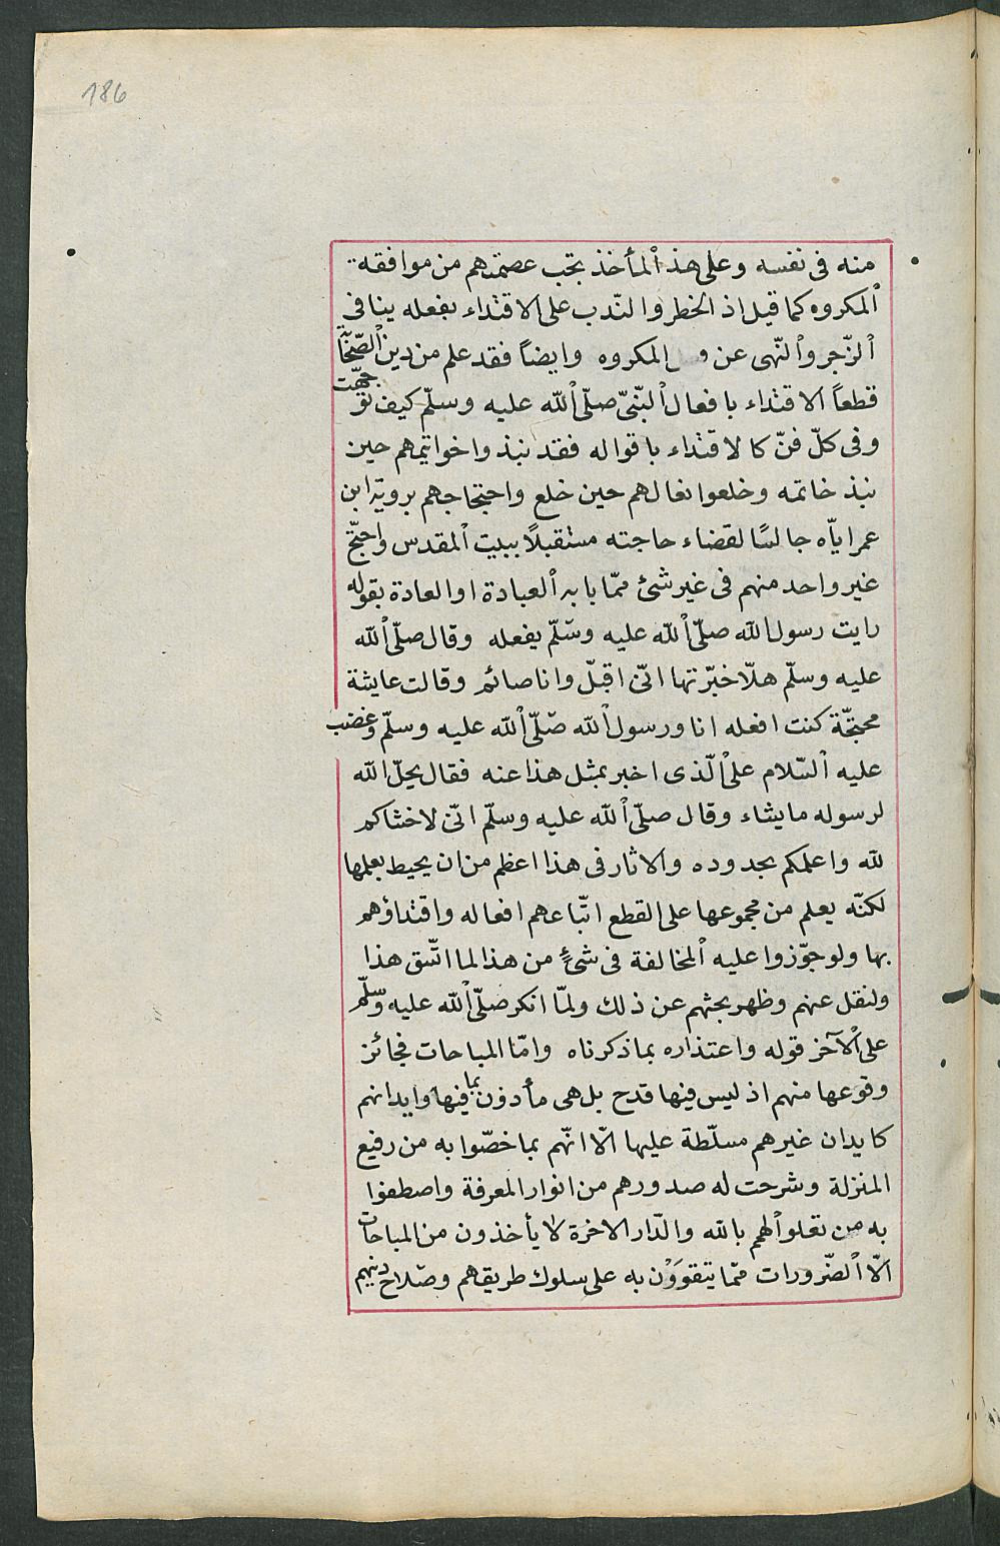 186
منه فى نفسه وعلى هذ المأخذ تجب عصمتهم من موافقة
المكروه كما قيل اذ الخطر والنّدب على الاقتداء بفعله ينافى
الزّجر والنّهى عن المكروه وايضاً فقد علم من دين الصّحابة
قطعاً الاقتداء بافعال النّبىّ صلّى الله عليه وسلّم كيف توجّهت
وفى كلّ فنّ كالاقتداء باقواله فقد نبذ واخواتيمهم حين
نبذ خاتمه وخلعوا نعالهم حين خلع واحتجاجهم بروية ابن
عمر ايّاه جالسًا لقضاء حاجته مستقبلاً ببيت المقدس واحتجّ
غير واحد منهم فى غير شئ ممّا بابه العبادة او العادة بقوله
رايت رسول الله صلّى الله عليه وسّلّم يفعله وقال صلّى الله
عليه وسلّم هلّا خبّرتها انّى اقبّل وانا صائم وقالت عايشة
محتجّة كنت افعله انا ورسول الله صّلّى الله عليه وسلّم وغضب
عليه السّلام على الّذى اخبر بمثل هذا عنه فقال يحلّ الله
لرسوله ما يشاء وقال صلّى الله عليه وسلّم انّى لاخشاكم
لله واعلمكم بحدوده والاثار فى هذا اعظم من ان يحيط بعلمها
لكنّه يعلم من مجموعها على القطع اتّباعهم افعاله واقتداؤهم
بها ولو جوّزوا عليه المخالفة فى شئٍ من هذا لما اتّسق هذا
ولنقل عنهم وظهر بحثهم عن ذلك ولمّا انكر صلّى الله عليه وسلّم
على الآخر قوله واعتذاره بما ذكرناه وامّا المباحات فجائز
وقوعها منهم اذ ليس فيها قدح بل هى مأذون بما فيها وايدانهم
كايدان غيرهم مسلّطة عليها الّا انّهم بما خصّوا به من رفيع
المنزلة وشرحت له صدورهم من انوار المعرفة واصطفوا
به من تعلو الهم بالله والدّار الاخرة لا يأخذون من المباحات
الّا الضّرورات ممّا يتقوّوْن به على سلوك طريقهم وصّلاح دينهم